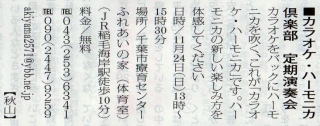 ■カラオケ・ハーモニカ
倶楽部 定期演奏会
カラオケをバックにハーモ
ニカを吹く、これが「カラオ
ケ・ハーモニカ」です。ハー
モニカの新しい楽しみ方を
体感してください
日時/11月24日(日)13時〜
15時30分
場所/千葉市療育センター
ふれあいの家(体育室)
(JR稲毛海岸駅徒歩10分)
料金/無料
☎043(253)6341
☎090(2447)9259
akiyama2571@ybb.ne.jp
【秋山】